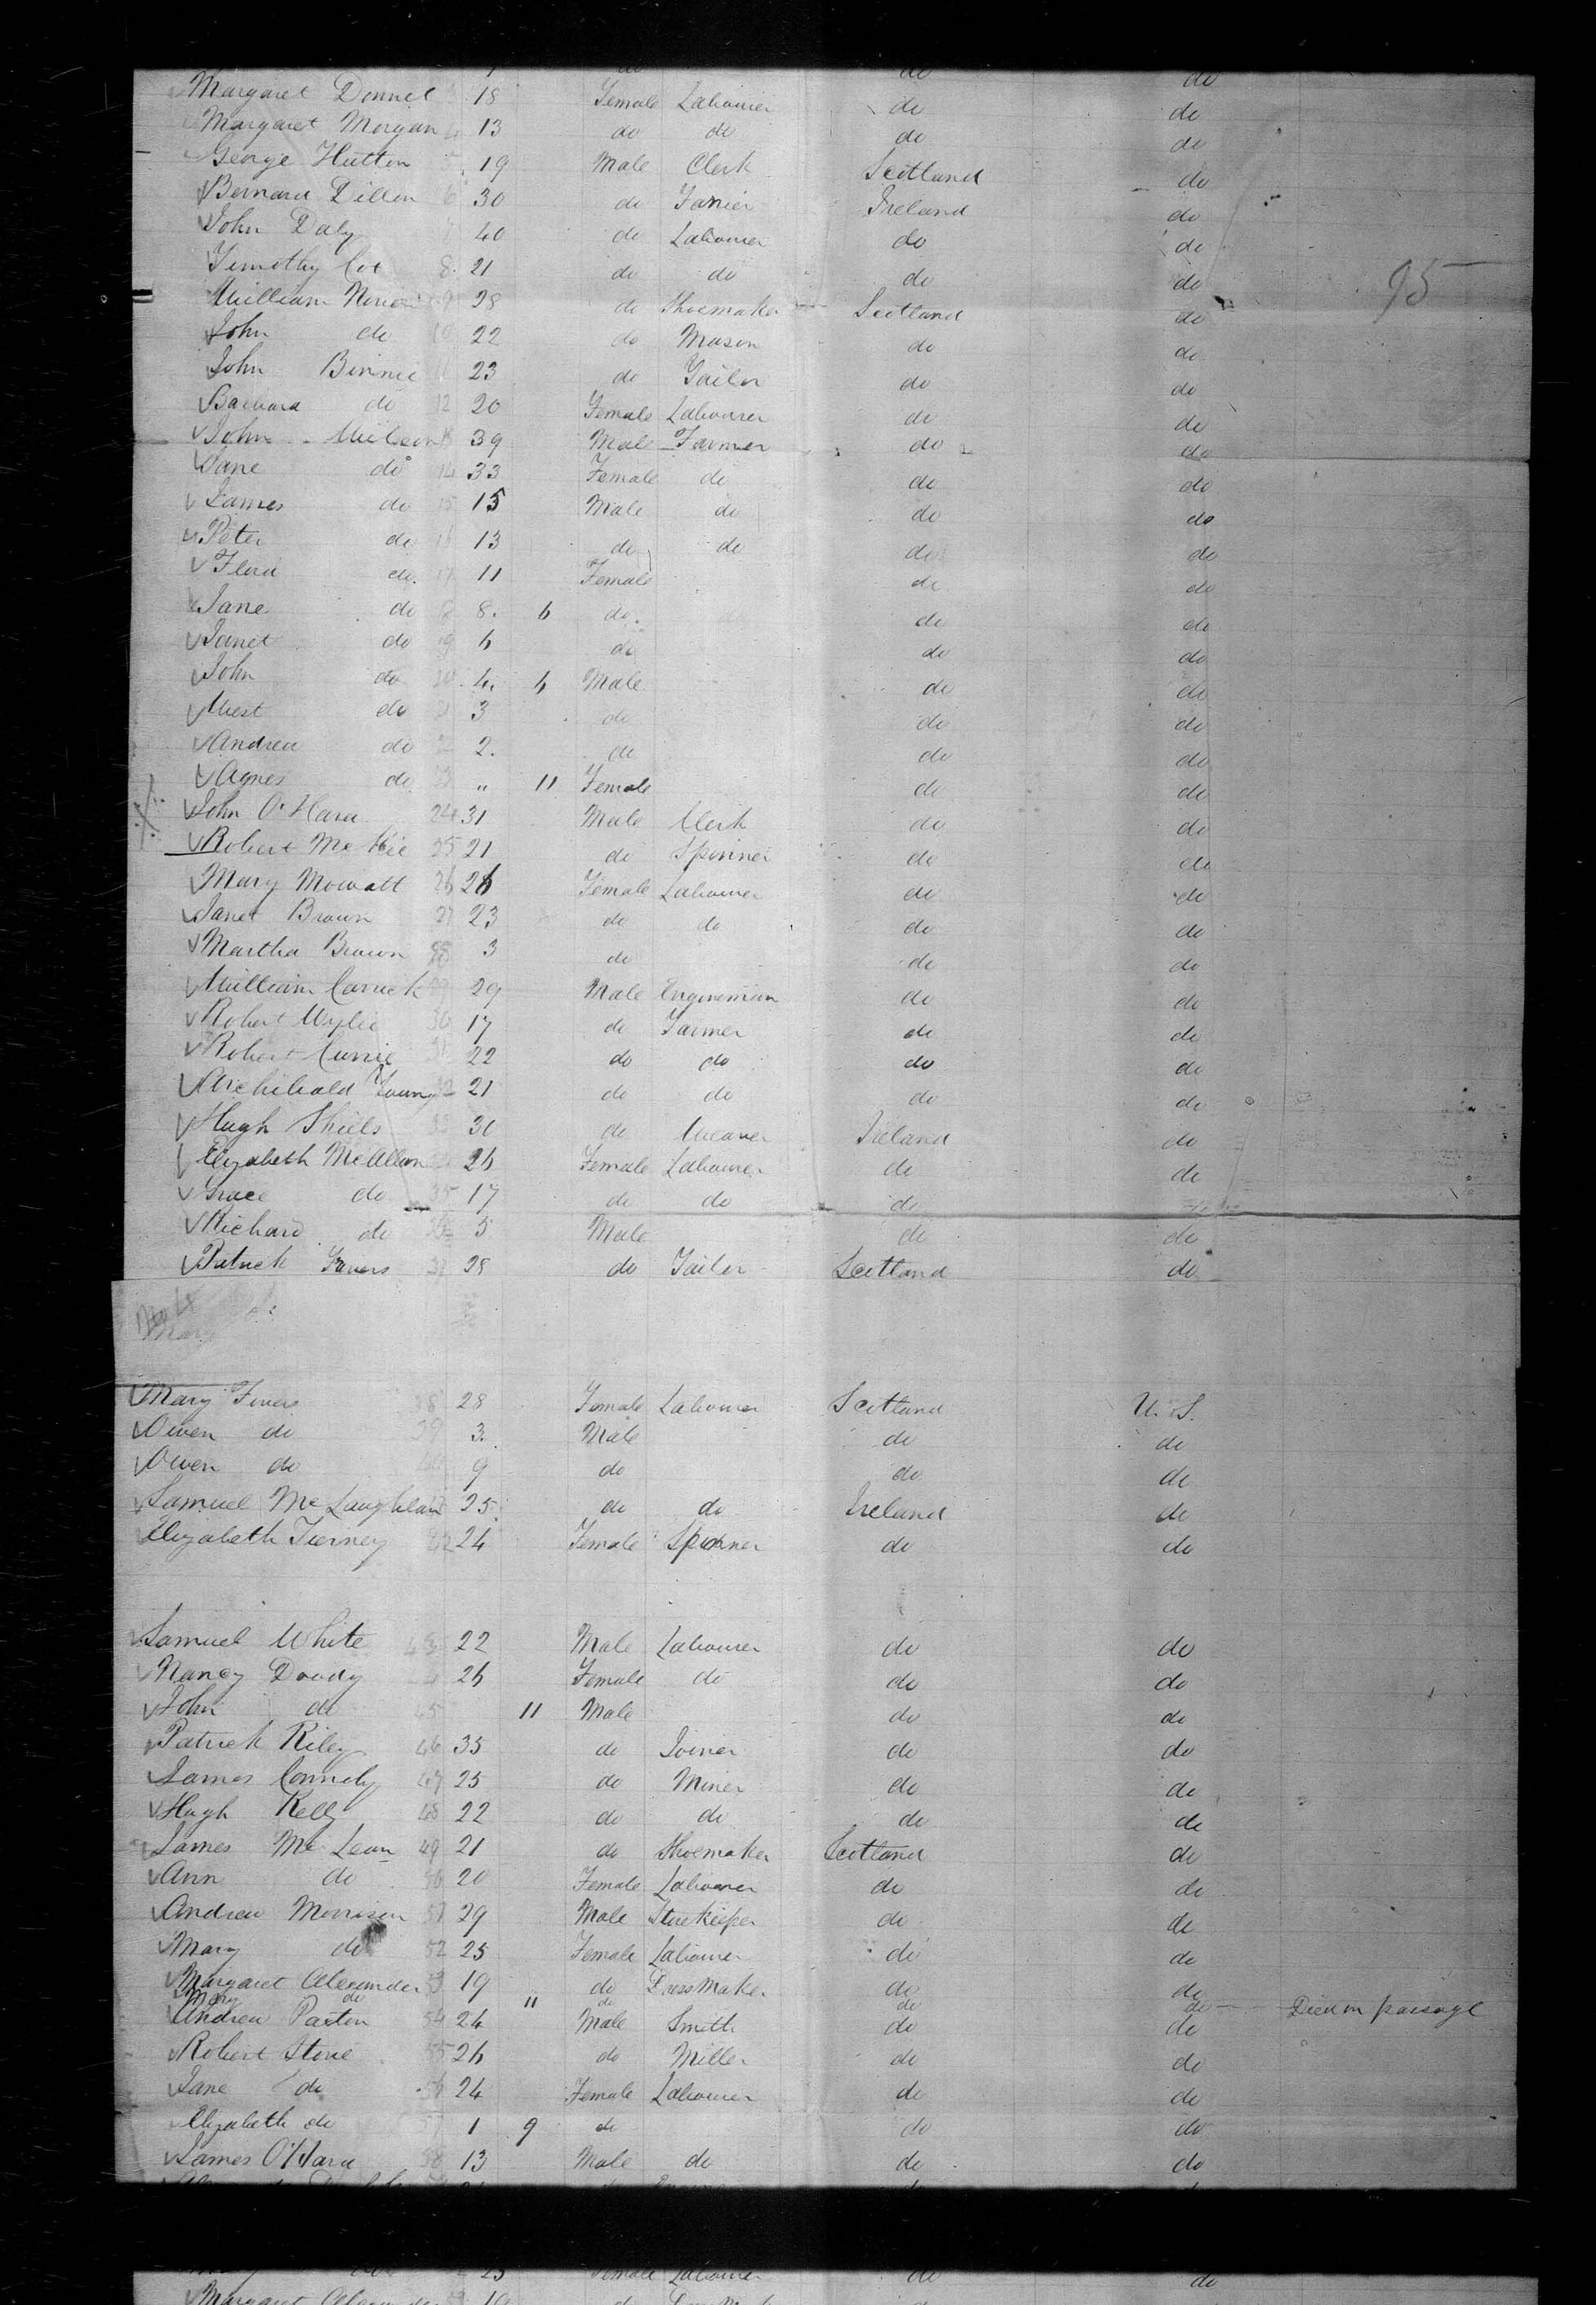 do do do
Margaret Donnel 18 Female Labourer do do
Margaret Morgan 13 do do do do
George Hutton 19 Male Clerk Scotland do
Bernard Dillon 6 30 do Ireland do
John Daly 40 do Labourer do do
Timothy 8 21 do do do do
William 28 do Shoemaker Scotland do
95
John do 10 22 do Mason do do
John Binnie 23 do Tailor do do
Barbara do 12 20 Female Labourer do do
John 39 Male Farmer do do
Jane do 14 33 Female do do do
James do 15 15 Male do do do
Peter do 16 13 do do do do
Flora do 17 11 Female do do
Jane do 8. 6 do. do do
Janet do 19 6 do do do
John do 4. 6 Male do do
West do 3 do do do
Andrew do 2. do do do
Agnes do " 11 Female do do
John O'Hara 24 31 Male Clerk do do
Robert McKie 25 21 do Spinner do do
Mary Mowatt 26 26 Female Labourer do do
Janet Brown 27 23 do do do do
Martha Brown 3 do do do
William Carrick 29 Male Engineman do do
Robert Wylie 30 17 do Farmer do do
Robert Currie 22 do do do do
Archibald Young 32 21 do do do do
Hugh Shiels 30 do Weaver Ireland do
Elizabeth McAllan 26 Female Labourer do do
Grace do 35 17 do do do
Richard do 5 Male do do
Patrick 28 do Tailor Scotland do
Mary 38 28 Female Labourer Scotland U. S.
Owen do 39 3. Male do do
Owen do 9 do do do
Samuel McLaughlan 25 do do Ireland do
Elizabeth Tierney 24 Female Spinner do do
Samuel White 22 Male Labourer do do
Nancy Doudy 26 Female do do do
John do 45 11 Male do do
Patrick Riley 46 35 do Joiner do do
James Connely 47 25 do Miner do do
Hugh Kelly 48 22 do do do do
James McLean 49 21 do Shoemaker Scotland do
Ann do 50 20 Female Labourer do do
Andrew Morrison 51 29 Male Storekeeper do do
Mary do 52 25 Female Labourer do do
Margaret Alexander 53 19 do Dress Maker do do
Mary do 11 do do do Died on passage
Andrew Paxton 54 24 Male Smith do do
Robert Stone 55 26 do Miller do do
Jane do 56 24 Female Labourer do do
Elizabeth do 57 1 9 do do do
James O'Hara 58 13 Male do do do
25 Female Labourer do do
Margaret Alexander 19